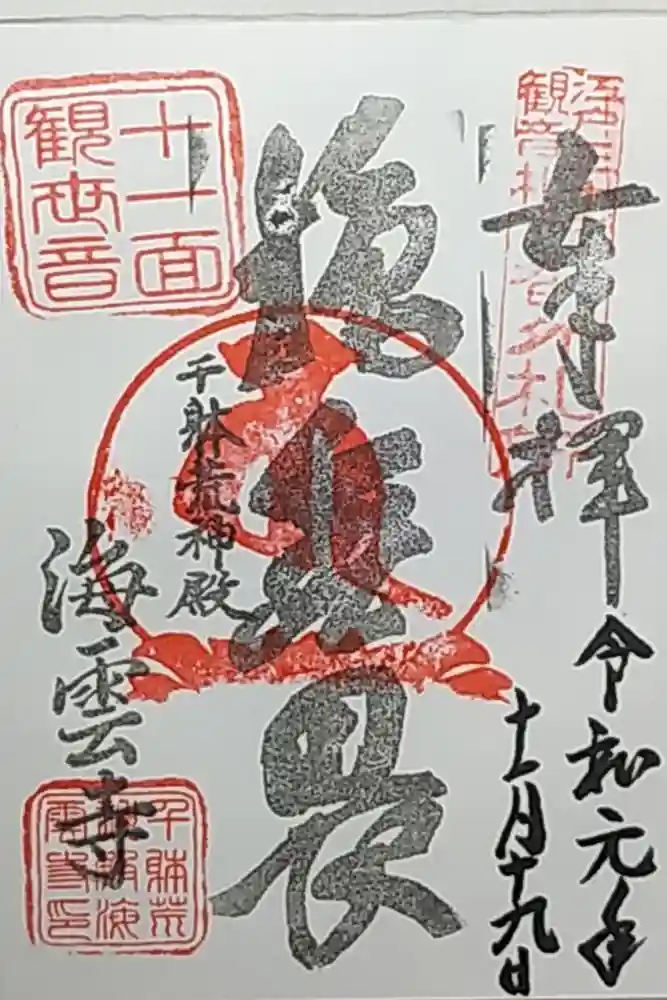 観音札所
奉拝
令和元年
十一月十九日
施無畏
千躰荒神殿
海雲寺
十一面
観世音
千躰荒
神殿海
雲寺印